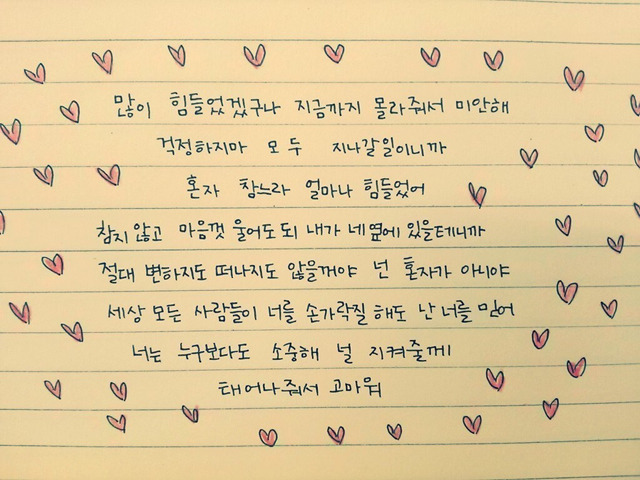 많이 힘들었겠구나 지금까지 몰라줘서 미안해
걱정하지마 모두 지나갈일이니까
혼자 참느라 얼마나 힘들었어
참지 않고 마음껏 울어도 되 내가 네 옆에 있을테니까
절대 변하지도 떠나지도 않을꺼야 넌 혼자가 아니야
세상 모든 사람들이 너를 손가락질 해도 난 너를 믿어
너는 누구보다도 소중해 널 지켜줄께
태어나줘서 고마워